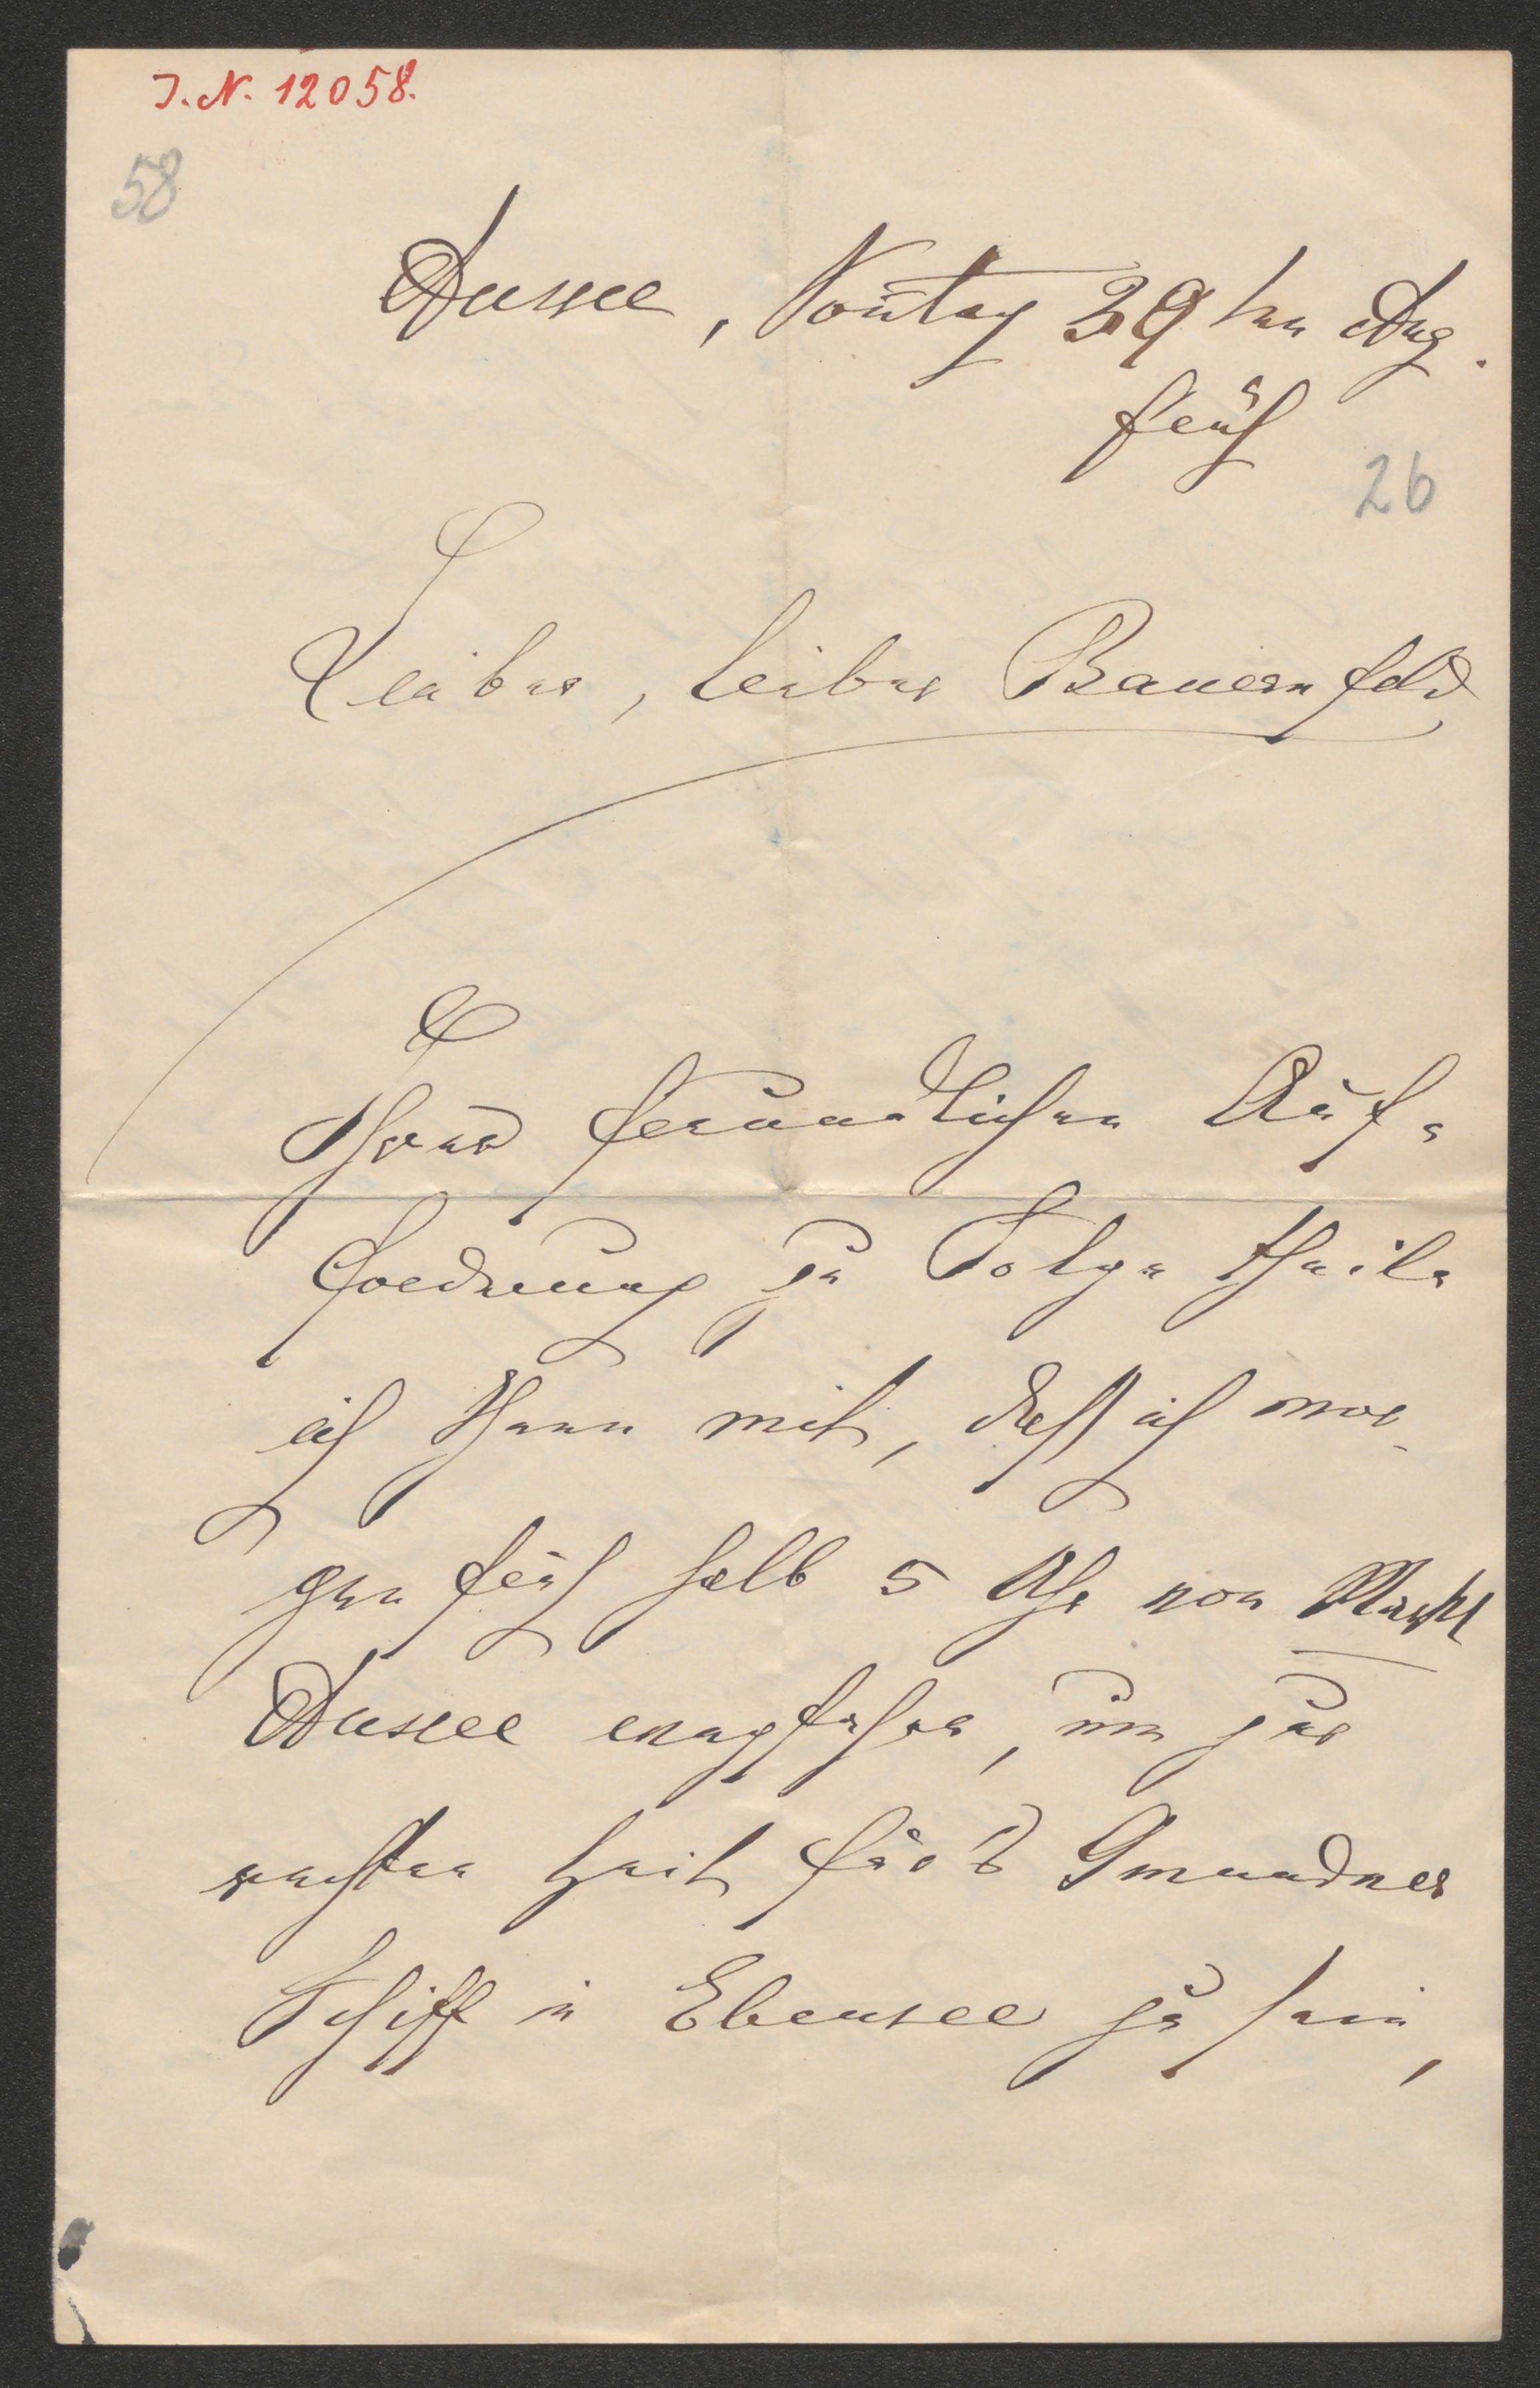 J. N. 12058.
58
Aussee, Sontag 29ten Aug.
früh
26
Lieber, lieber Bauernfeld
Ihrer freundlichen Auf-
forderung zu Folge theile
ich Ihnen mit, daß ich mor-
gen früh halb 5 Uhr von Markt
Aussee wegfahre, um zur
rechten Zeit für's Gmundner
Schiff in Ebensee zu sein,